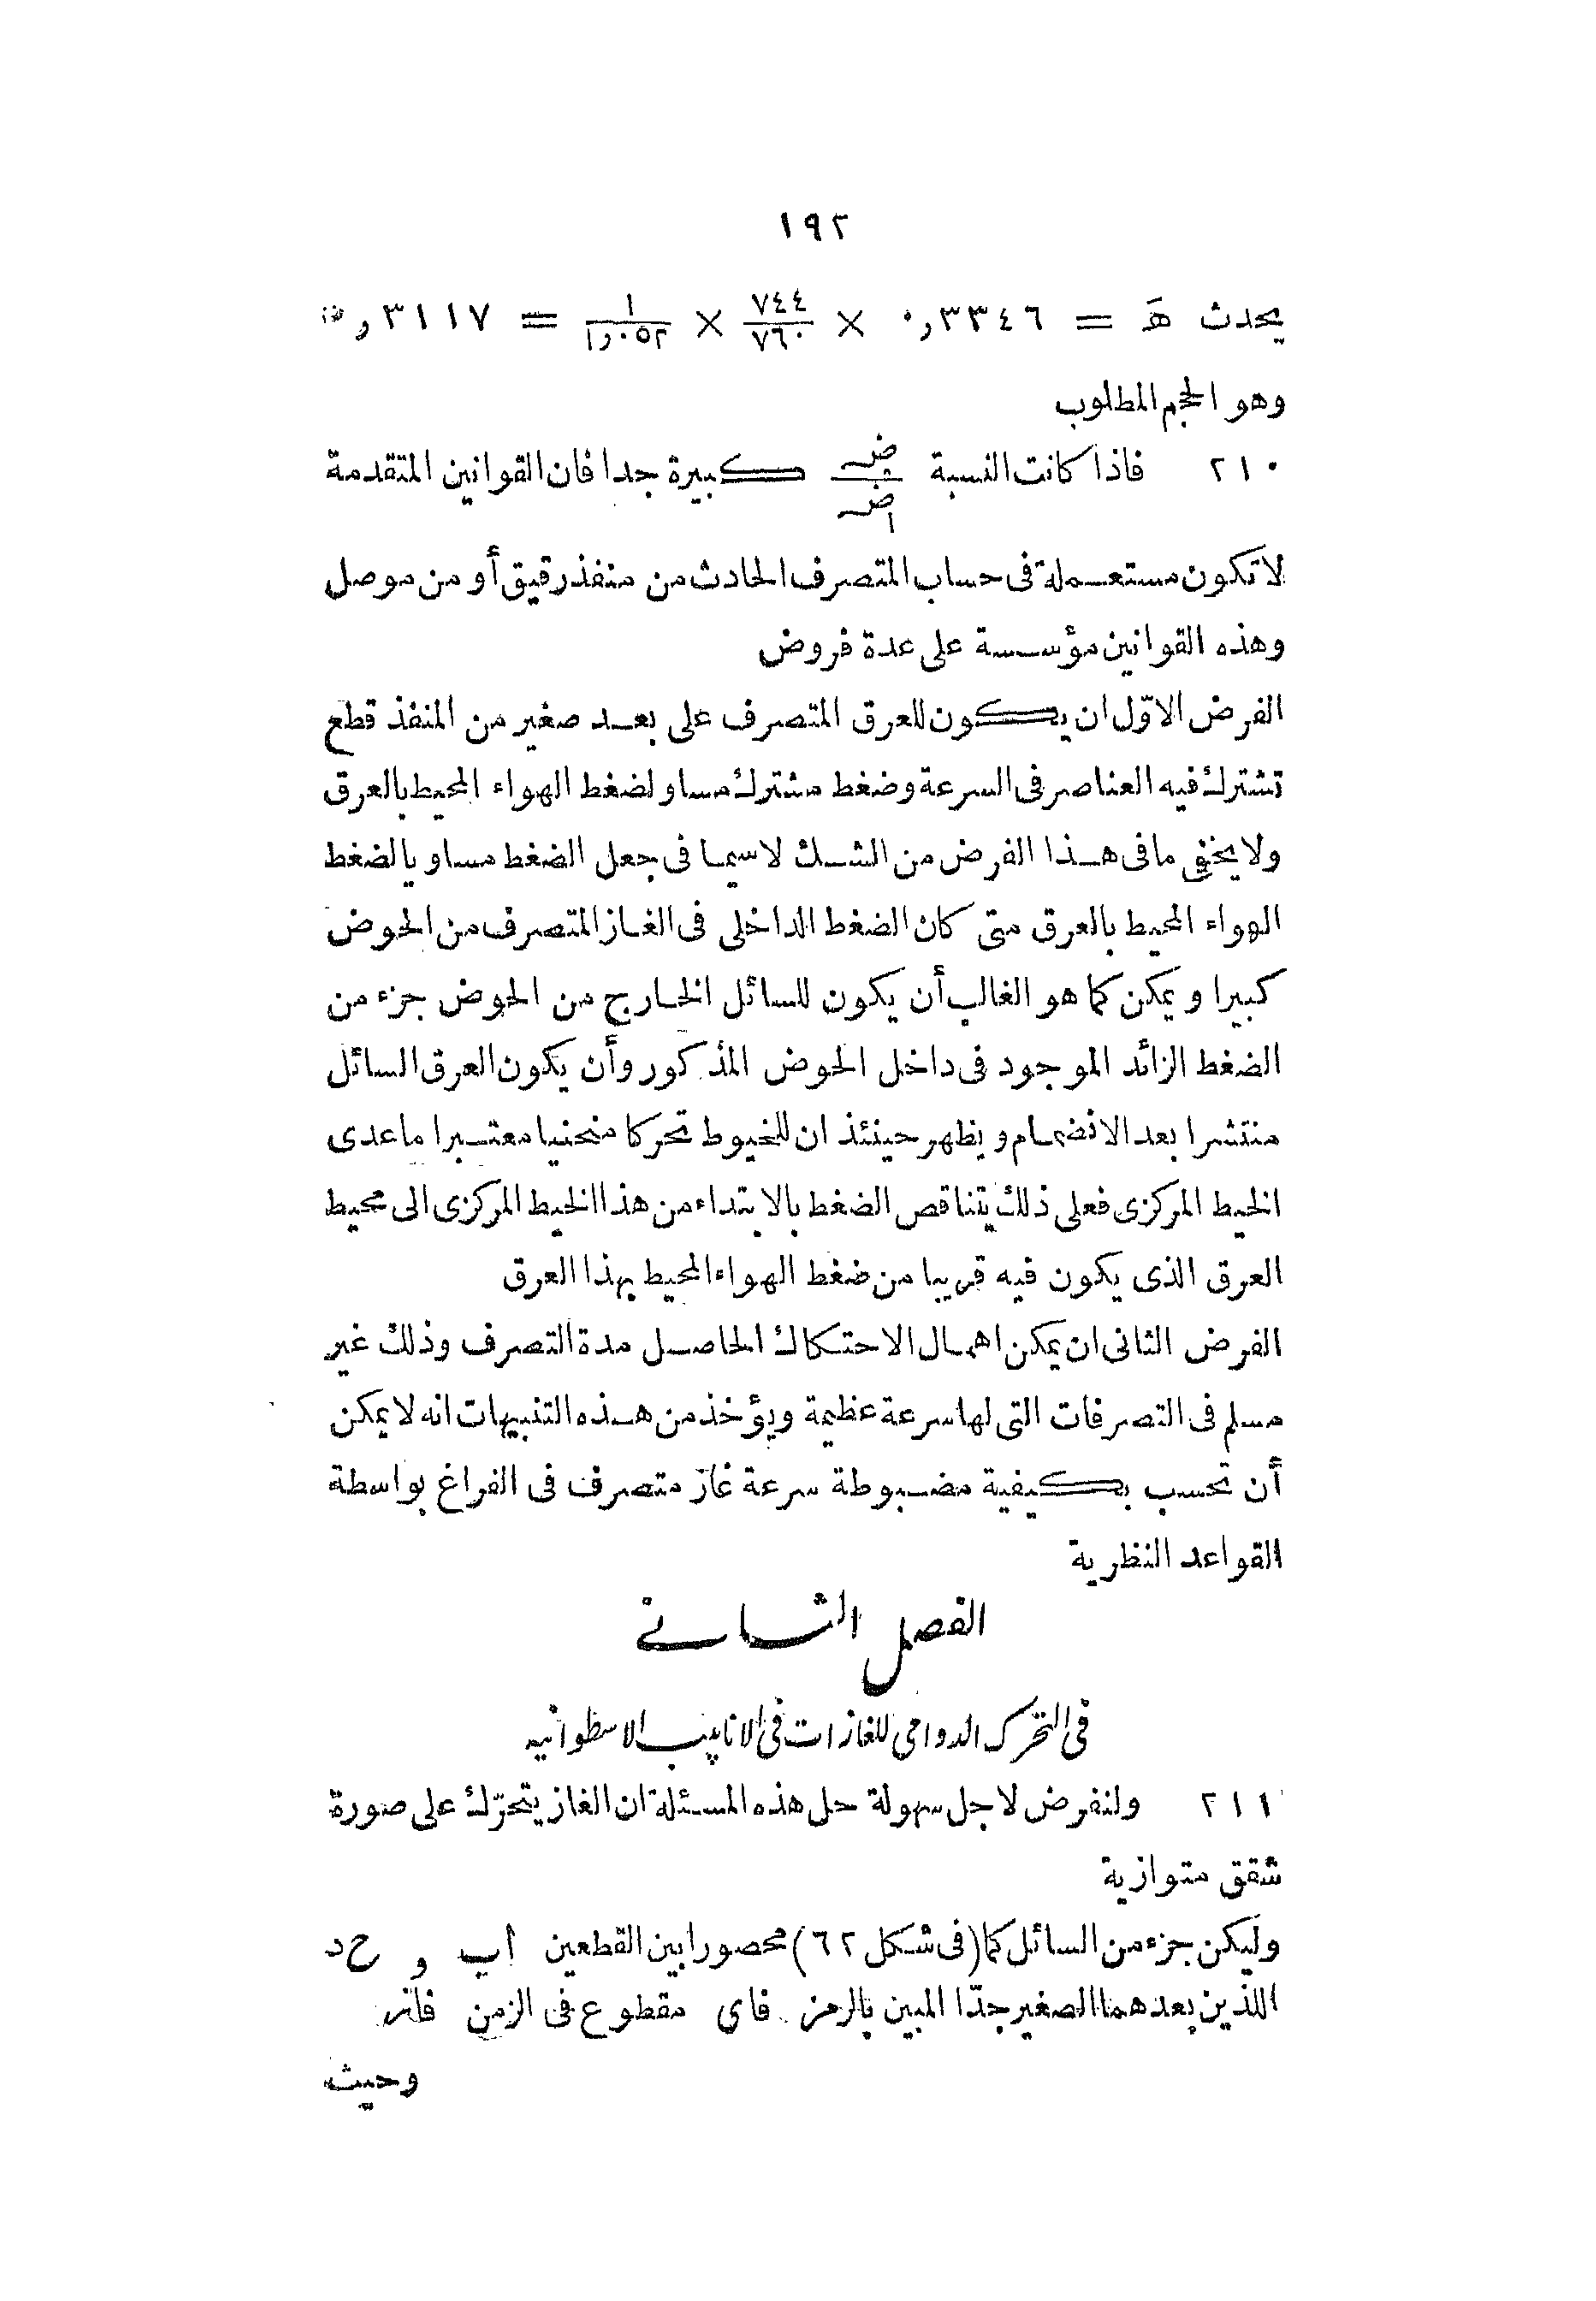 ١٩٢
يحدث هَ = ٠٫٣٣٤٦ × ٧٤٤/٧٦٠ × ١/١٫٠٥٢ = ٣١١٧٫
وهو الحجم المطلوب
٢١٠ فاذا كانت النسبة كبيرة جدا فان القوانين المتقدمة
لا تكون مستعملة فى حساب المتصرف الحادث من منفذ رقيق أو من موصل
وهذه القوانين مؤسسة على عدة فروض
الفرض الاوّل ان يكون للعرق المتصرف على بعد صغير من المنفذ قطع
تشترك فيه العناصر فى السرعة وضغط مشترك مساو لضغط الهواء المحيط بالعرق
ولا يخفى ما فى هذا الفرض من الشك لاسيما فى جعل الضغط مساويا لضغط
الهواء المحيط بالعرق متى كان الضغط الداخلى فى الغاز المتصرف من الحوض
كبيرا ويمكن كما هو الغالب أن يكون للسائل الخارج من الحوض جزء من
الضغط الزائد الموجود فى داخل الحوض المذكور وأن يكون العرق السائل
منتشرا بعد الانضمام ويظهر حينئذ ان للخيوط تحركا منحنيا معتبرا ماعدى
الخيط المركزى فعلى ذلك يتناقص الضغط بالابتداء من هذا الخيط المركزى الى محيط
العرق الذى يكون فيه قريبا من ضغط الهواء المحيط بهذا العرق
الفرض الثانى ان يمكن اهمال الاحتكاك الحاصل مدة التصرف وذلك غير
مسلم فى التصرفات التى لها سرعة عظيمة ويؤخذ من هذه التنبيهات انه لا يمكن
أن تحسب بكيفية مضبوطة سرعة غاز متصرف فى الفراغ بواسطة
القواعد النظرية
الفصل الثانى
فى التحرك الدوامى للغازات فى الانابيب الاسطوانيه
٢١١ ولنفرض لاجل سهولة حل هذه المسئلة ان الغاز يتحرّك على صورة
شقق متوازية
وليكن جزء من السائل كما (فى شكل ٦٢) محصورا بين القطعين اب و ح د
اللذين بعدهما الصغير جدّا المبين بالرمز فاى مقطوع فى الزمن
وحيث